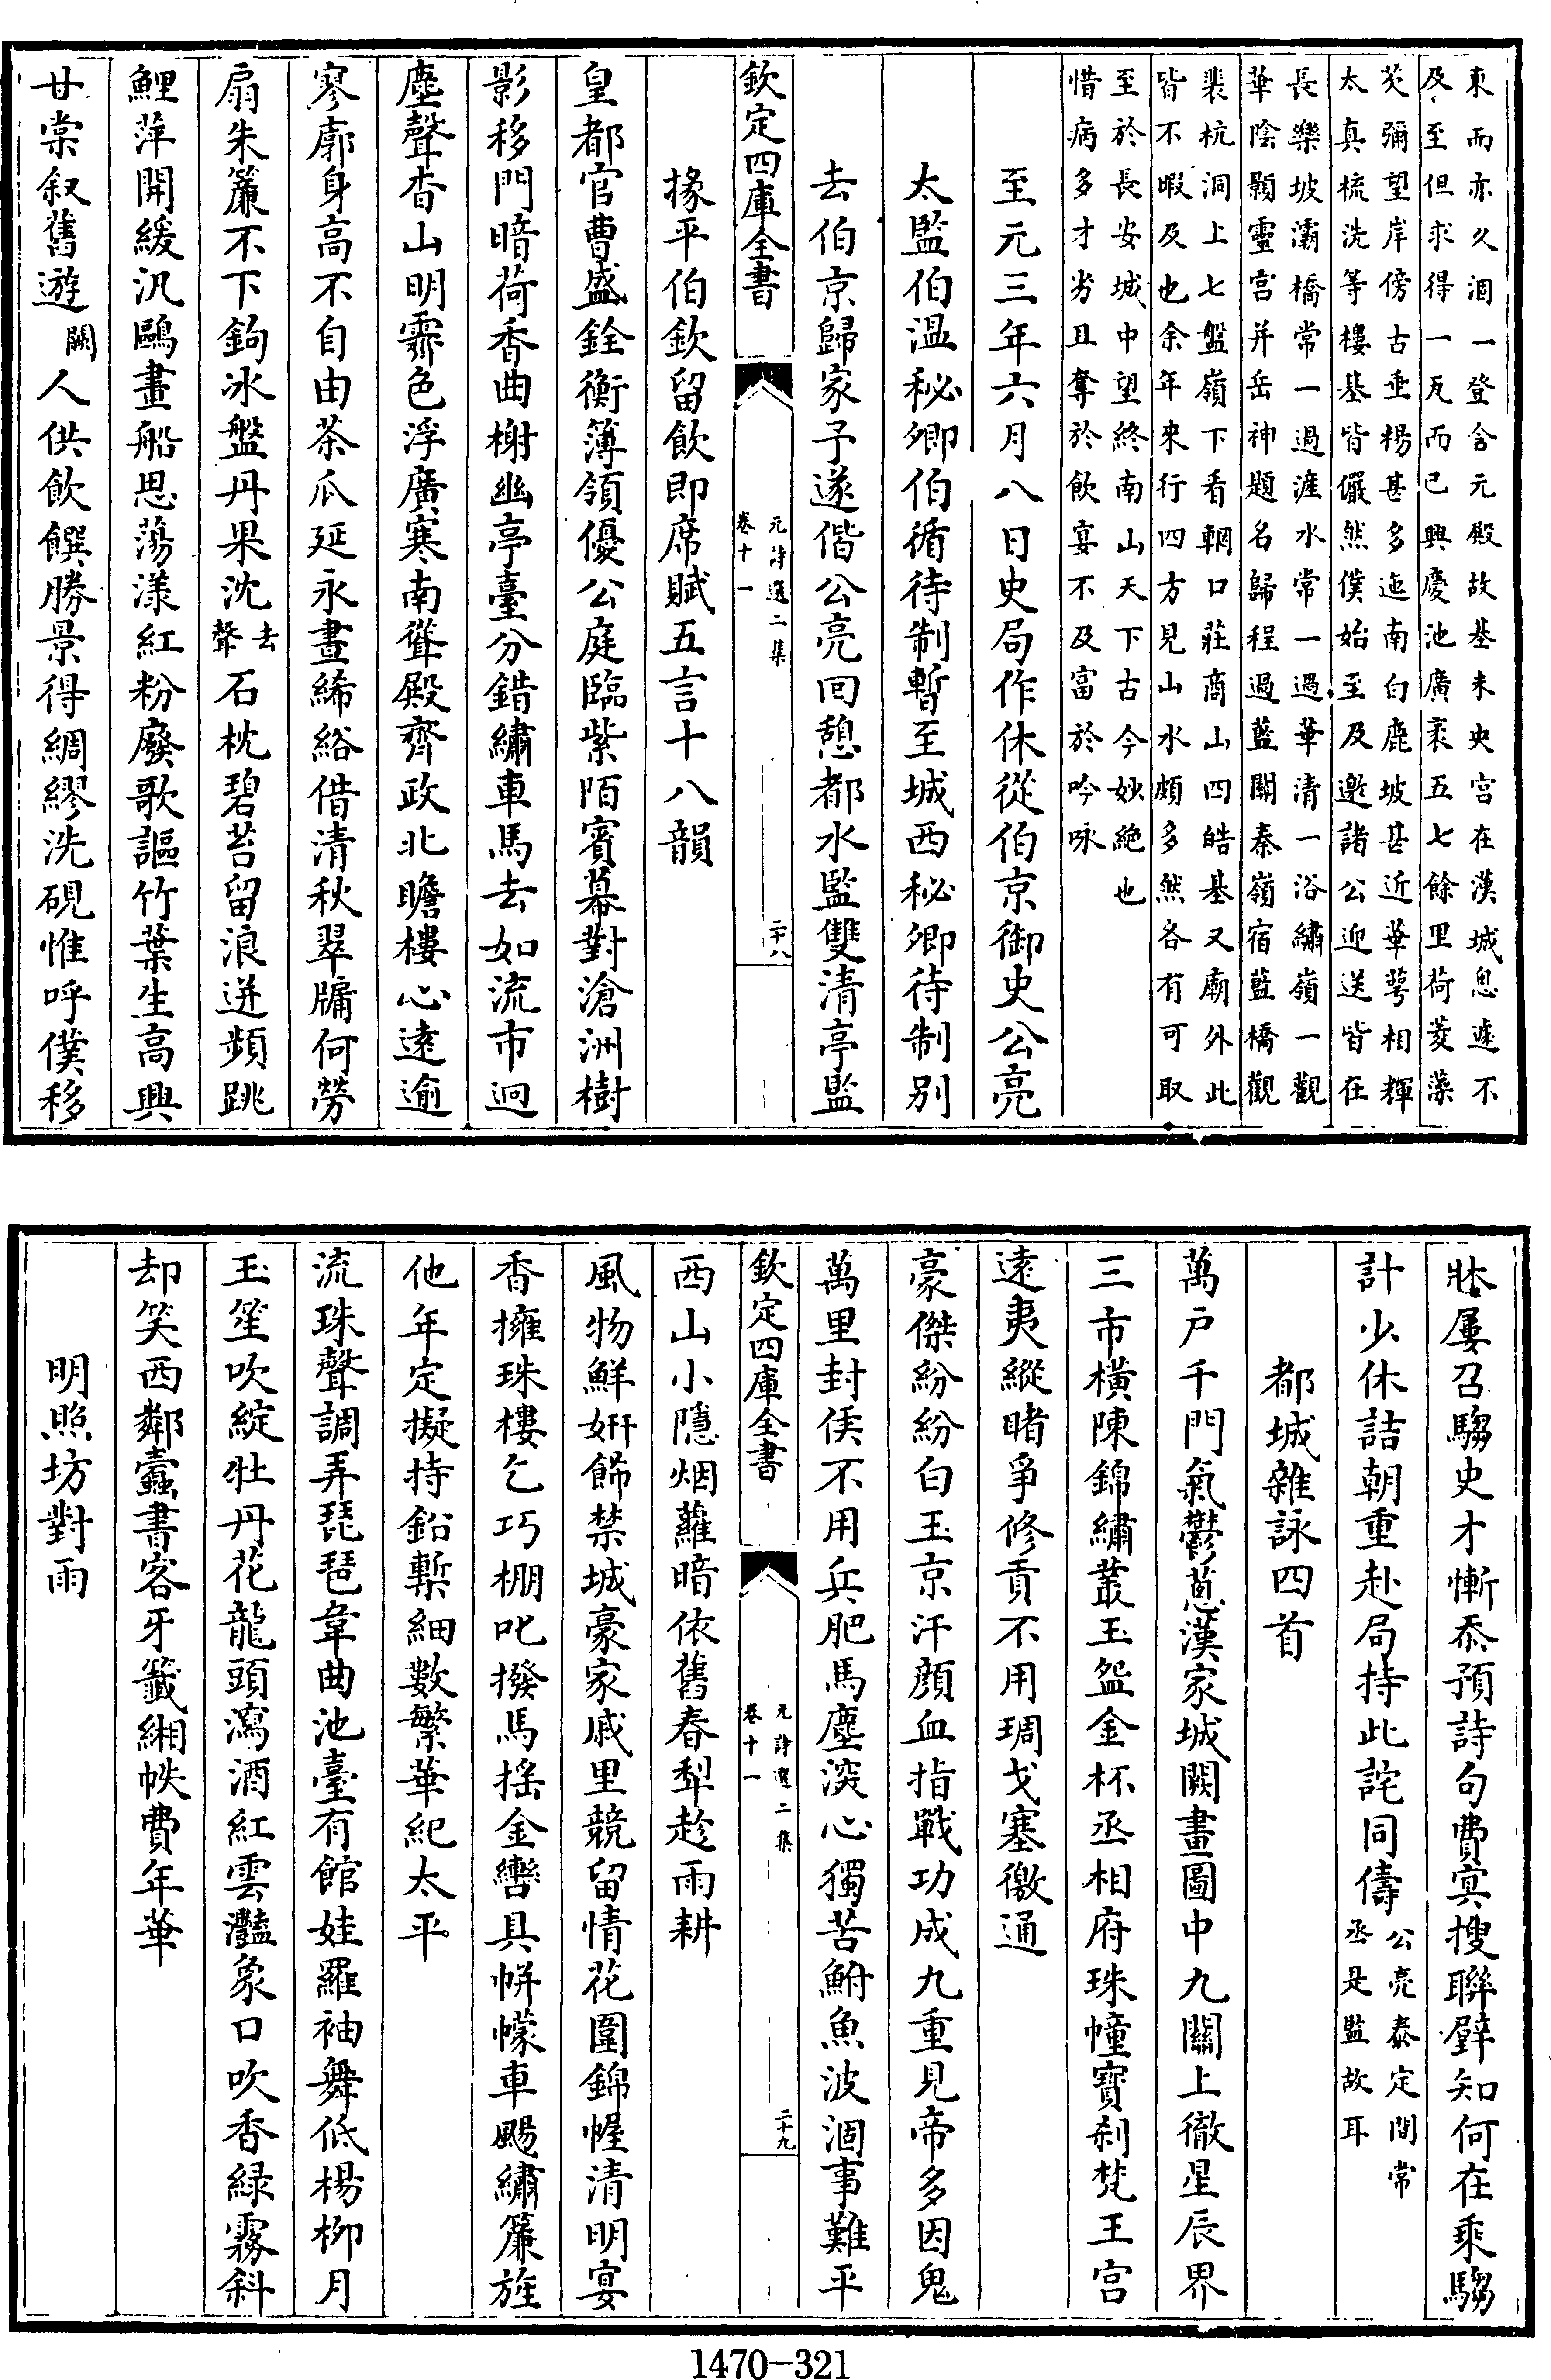 東而亦久涸一登含元殿故基未央宫在漢城恩遽不
及至但求得一瓦而已興慶池廣袤五七餘里荷菱藻
芡彌望岸傍古垂楊甚多迤南白鹿坡甚近華萼相輝
太真梳洗等樓基皆儼然僕始至及邀諸公迎送皆在
長樂坡灞橋常一過滻水常一過華清一浴繡嶺一觀
華陰顥靈宫并岳神題名歸程過藍關秦嶺宿藍橋觀
裴杭洞上七盤嶺下看輞口莊商山四皓基又廟外此
皆不暇及也余年來行四方見山水頗多然各有可取
至於長安城中望終南山天下古今妙絶也
惜病多才劣且奪於飲宴不及富於吟咏
至元三年六月八日史局作休從伯京御史公亮
太監伯温秘卿伯循待制暫至城西秘卿待制别
去伯京歸家予遂偕公亮回憩都水監雙清亭監
欽定四庫全書
元詩選二集
卷十一
二十八
掾平伯欽留飲即席賦五言十八韻
皇都官曹盛銓衡簿領優公庭臨紫陌賓幕對滄洲樹
影移門暗荷香曲榭幽亭臺分錯繡車馬去如流市迥
塵聲杳山明霽色浮廣寒南聳殿齊政北瞻樓心遠逾
寥廓身高不自由茶瓜延永晝絺綌借清秋翠牖何勞
扇朱簾不下鉤冰盤丹果沈去聲石枕碧苔留浪迸頻跳
鯉萍開緩汎鷗畫船思蕩漾紅粉廢歌謳竹葉生高興
甘棠叙舊遊闕人供飲饌勝景得綢繆洗硯惟呼僕移
牀屢召騶史才慚忝預詩句費㝠搜聯璧知何在乘騶
計少休詰朝重赴局持此詫同儔公亮泰定間常
丞是監故耳
都城雜詠四首
萬户千門氣鬱葱漢家城闕畫圖中九關上徹星辰界
三市横陳錦繡叢玉盌金杯丞相府珠幢寳刹梵王宫
遠夷縱睹爭修貢不用琱戈塞徼通
豪傑紛紛白玉京汗顔血指戰功成九重見帝多因鬼
萬里封侯不用兵肥馬塵深心獨苦鮒魚波涸事難平
欽定四庫全書
元詩選二集
卷十一
二十九
西山小隱烟蘿暗依舊春犁趁雨耕
風物鮮妍飾禁城豪家戚里競留情花圍錦幄清明宴
香擁珠樓乞巧棚叱撥馬揺金轡具帡幪車颺繡簾旌
他年定擬持鉛槧細數繁華紀太平
流珠聲調弄琵琶韋曲池臺有館娃羅袖舞低楊柳月
玉笙吹綻牡丹花龍頭瀉酒紅雲灩象口吹香緑霧斜
却笑西鄰蠹書客牙籤緗帙費年華
明照坊對雨
1470-321